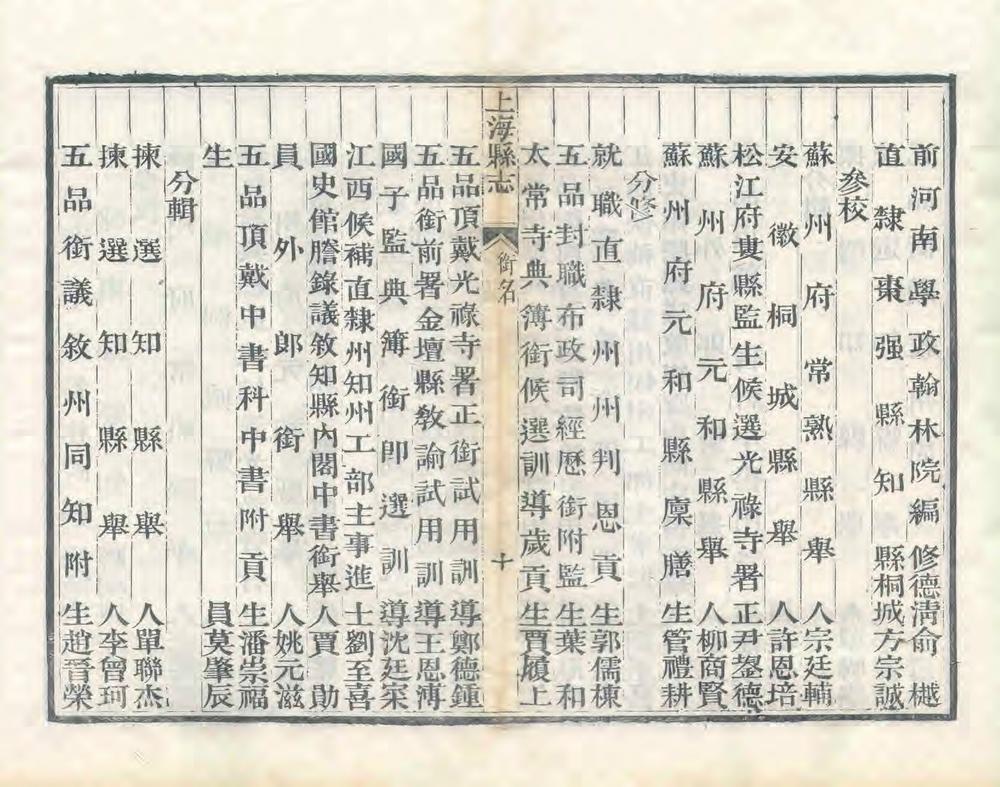 前河南學政翰林院編修德淸俞樾
直隸棗强縣知縣桐城方宗誠
參校
蘇州府常熟縣舉人宗廷輔
安徽桐城縣舉人許恩培
松江府婁縣監生候選光祿寺署正尹鋆德
蘇州府元和縣舉人柳商賢
蘇州府元和縣廩膳生管禮耕
分修
就職直隸州州判恩貢生郭儒棟
五品封職布政司經歷銜附監生葉和
太常寺典簿銜候選訓導歲貢生賈履上
上海縣志
銜名
十
五品頂戴光祿寺署正銜試用訓導鄭德鍾
五品銜前署金壇縣教諭試用訓導王恩溥
國子監典簿銜即選訓導沈廷寀
江西候補直隸州知州工部主事進士劉至喜
國史館謄錄議敘知縣內閣中書銜舉人賈勛
員外郎銜舉人姚元滋
五品頂戴中書科中書附貢生潘崇福
生員莫肇辰
分輯
揀選知縣舉人單聯杰
揀選知縣舉人李曾珂
五品銜議敘州同知附生趙晉榮